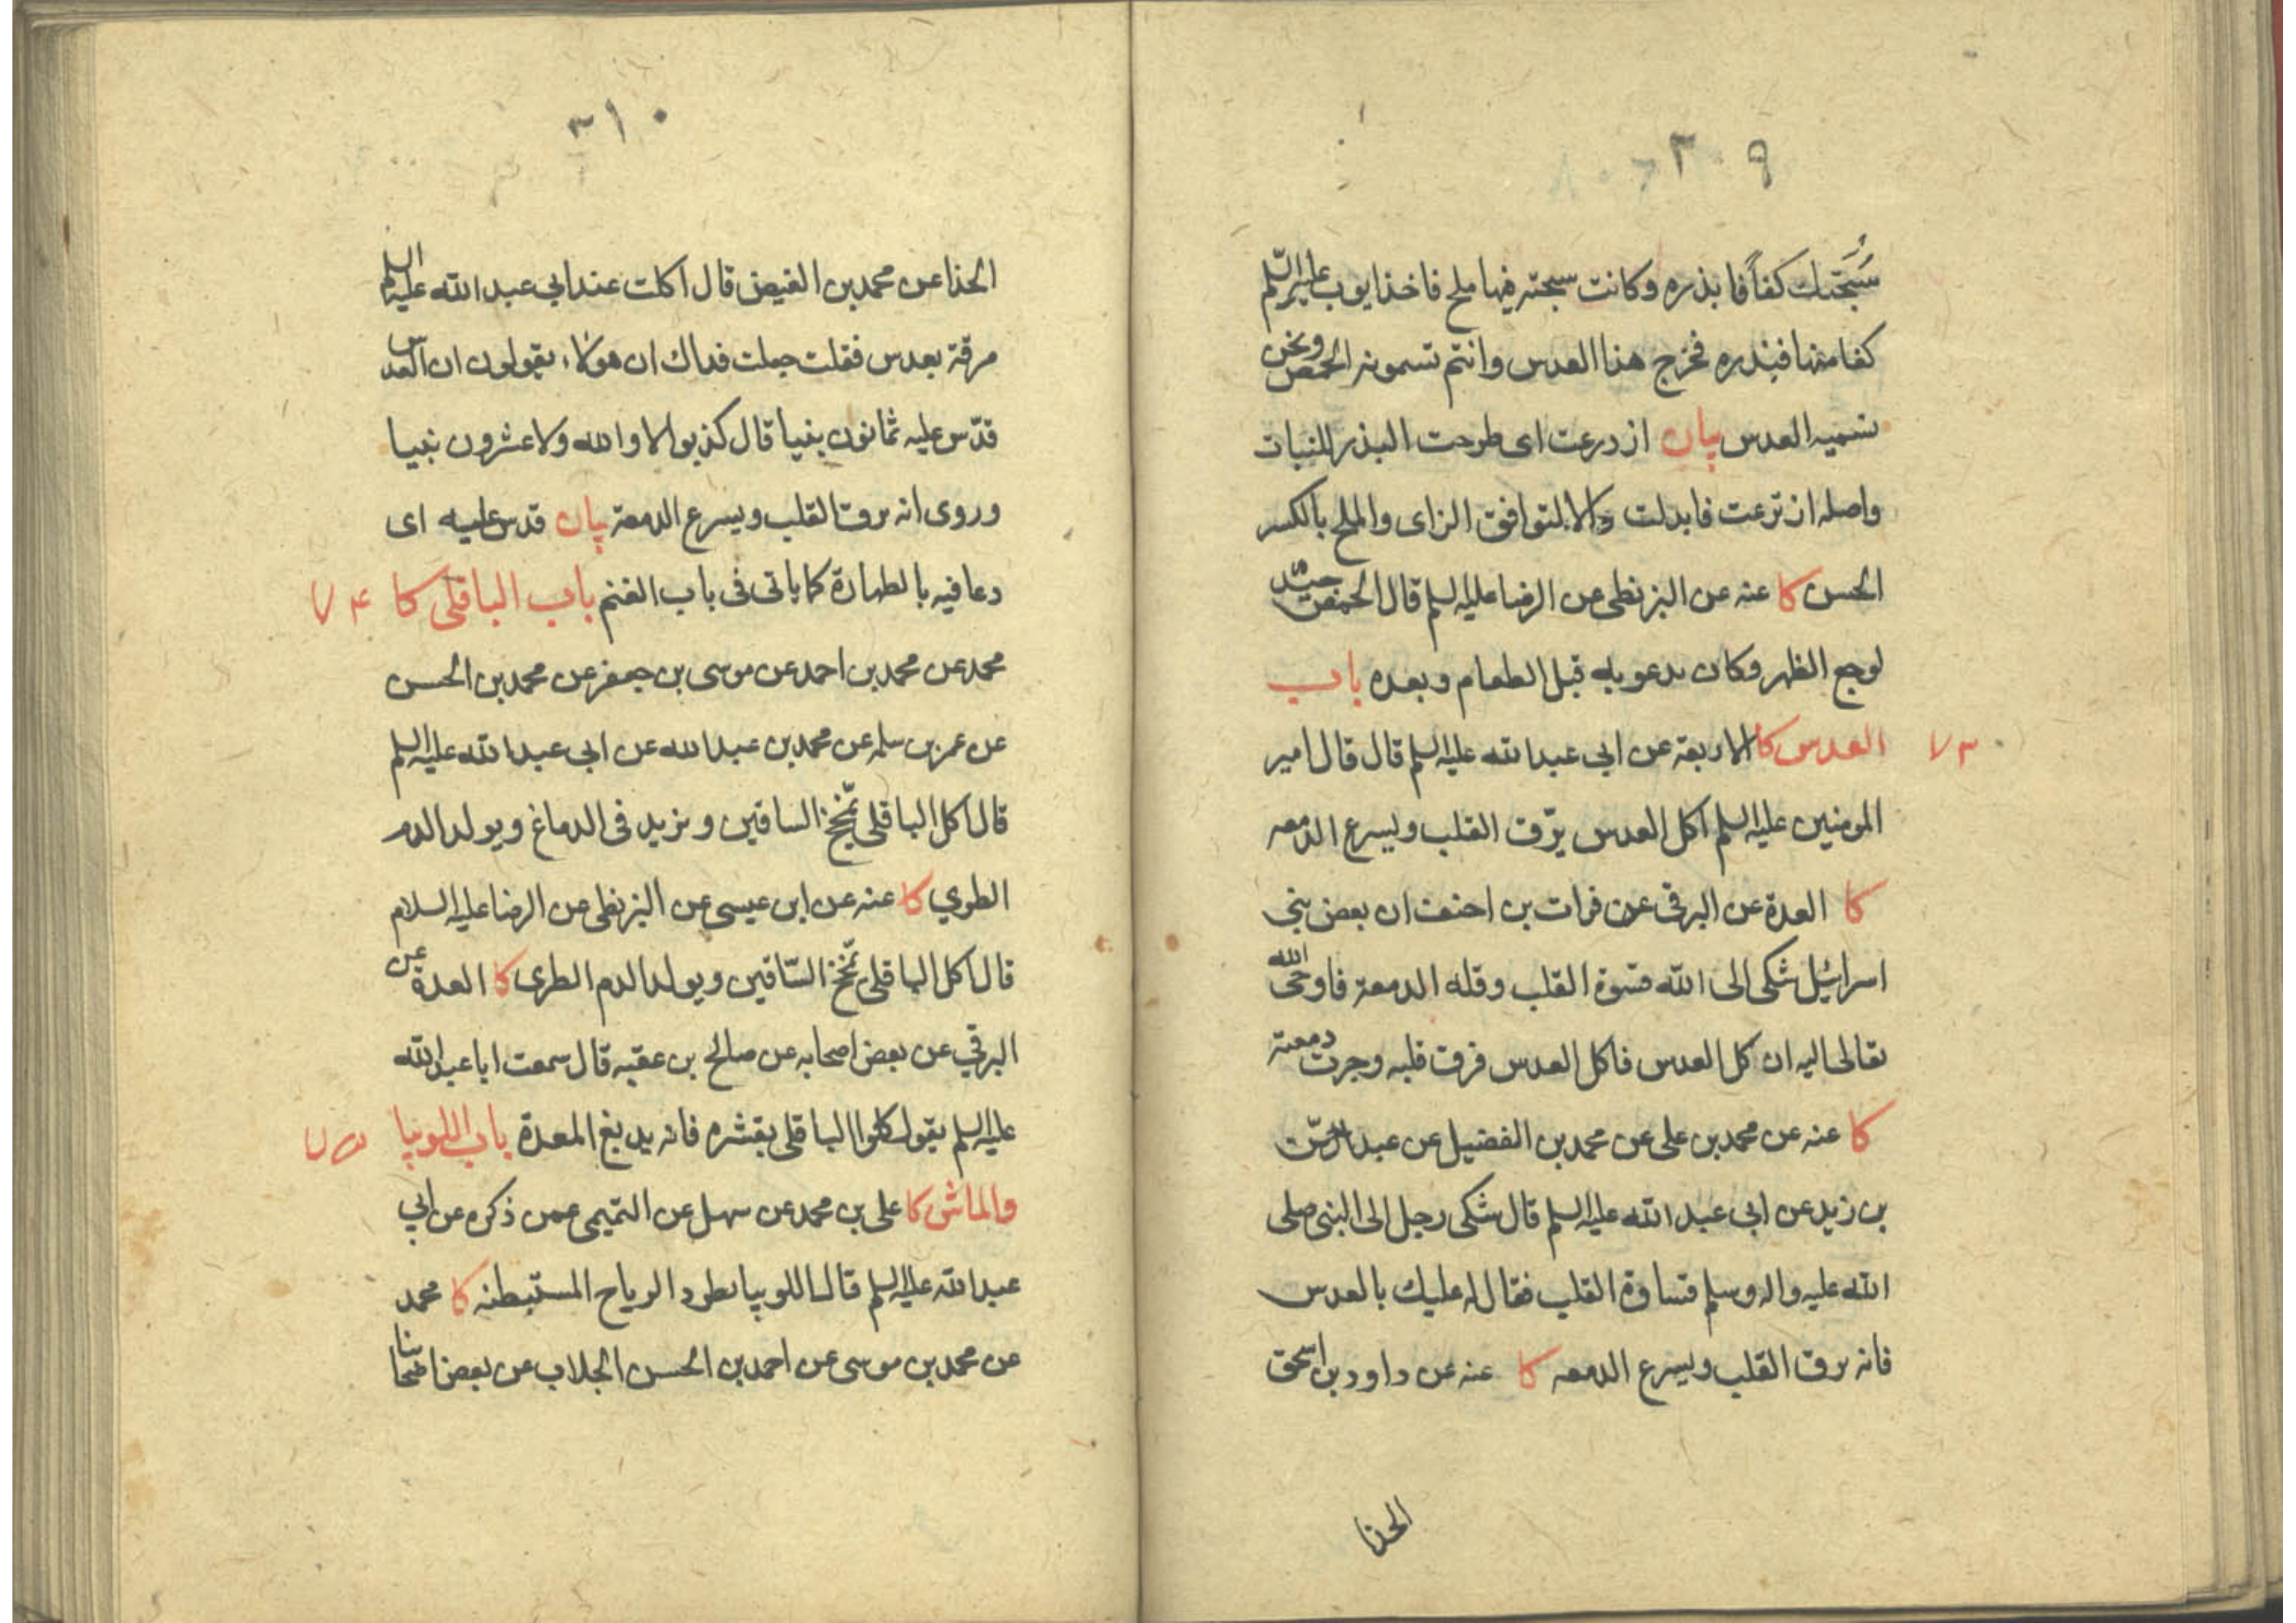 ٣٠٩
سُبحتك كفاً فابذره وكانت سبحته فيها ملح فاخذ ايوب عليه السلم
كفا منها فبذره فخرج هذا العدس وانتم تسمونه الحمص ونحن
نسميه العدس بيان ازدرعت اى طرحت البذر للنبات
واصله ازترعت فابدلت دالا لتوافق الزاى والملح بالكسر
الحسن كا عنه عن البزنطى عن الرضا عليه السلم قال الحمص جيد
لوجع الظهر وكان يدعو به قبل الطعام وبعده باب
٧٣ العدس كا الاربعة عن ابي عبد الله عليه السلم قال قال امير
المومنين عليه السلم اكل العدس يرّق القلب ويسرع الدمعه
كا العدة عن البرقى عن فرات بن احنف ان بعض بنى
اسرائيل شكى الى الله قسوة القلب وقله الدمعة فاوحى الله
تعالى اليه ان كل العدس فاكل العدس فرق قلبه وجرت دمعته
كا عنه عن محمد بن على عن محمد بن الفضيل عن عبد الرحمن
بن زيد عن ابى عبد الله عليه السلم قال شكى رجل الى النبى صلى
الله عليه واله وسلم قساوة القلب فقال له عليك بالعدس
فانه يرق القلب ويسرع الدمعه كا عنه عن داود بن اسحق
الحذا
٣١٠
الحذا عن محمد بن الفيض قال اكلت عند ابي عبد الله عليه السلم
مرقة بعدس فقلت جعلت فداك ان هولاء يقولون ان العدس
قدّس عليه ثمانون نبيا قال كذبوا لا والله ولا عشرون نبيا
وروى انه يرق القلب ويسرع الدمعة بيان قدس عليه اى
دعا فيه بالطهارة كما ياتى فى باب الغنم باب الباقلى كا ٧۴
محمد عن محمد بن احمد عن موسى بن جعفر عن محمد بن الحسن
عن عمر بن سلمه عن محمد بن عبد الله عن ابي عبد الله عليه السلم
قال اكل الباقلى تمخّخ الساقين ويزيد فى الدماغ ويولد الدم
الطري كا عنه عن ابن عيسى عن البزنطى عن الرضا عليه السلام
قال اكل الباقلى تمخّخ السّاقين ويولد الدم الطرى كا العدة عن
البرقي عن بعض اصحابه عن صالح بن عقبه قال سمعت ابا عبد الله
عليه السلم يقول كلوا الباقلى بقشره فانه يدبغ المعدة باب اللوبيا ٧۵
والماش كا على بن محمد عن سهل عن التميمى عمن ذكره عن ابي
عبد الله عليه السلم قال اللوبيا تطرد الرياح المستبطنه كا محمد
عن محمد بن موسى عن احمد بن الحسن الجلاب عن بعض اصحابنا